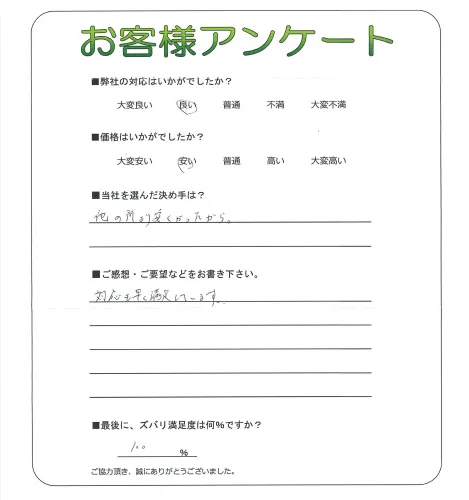 お客様アンケート
■弊社の対応はいかがでしたか？
大変良い 良い 普通 不満 大変不満
■価格はいかがでしたか？
大変安い 安い 普通 高い 大変高い
■当社を選んだ決め手は？
他の所より安くかったから。
■ご感想・ご要望などをお書き下さい。
対応も早く満足しています。
■最後に、ズバリ満足度は何%ですか？
100 %
ご協力頂き、誠にありがとうございました。